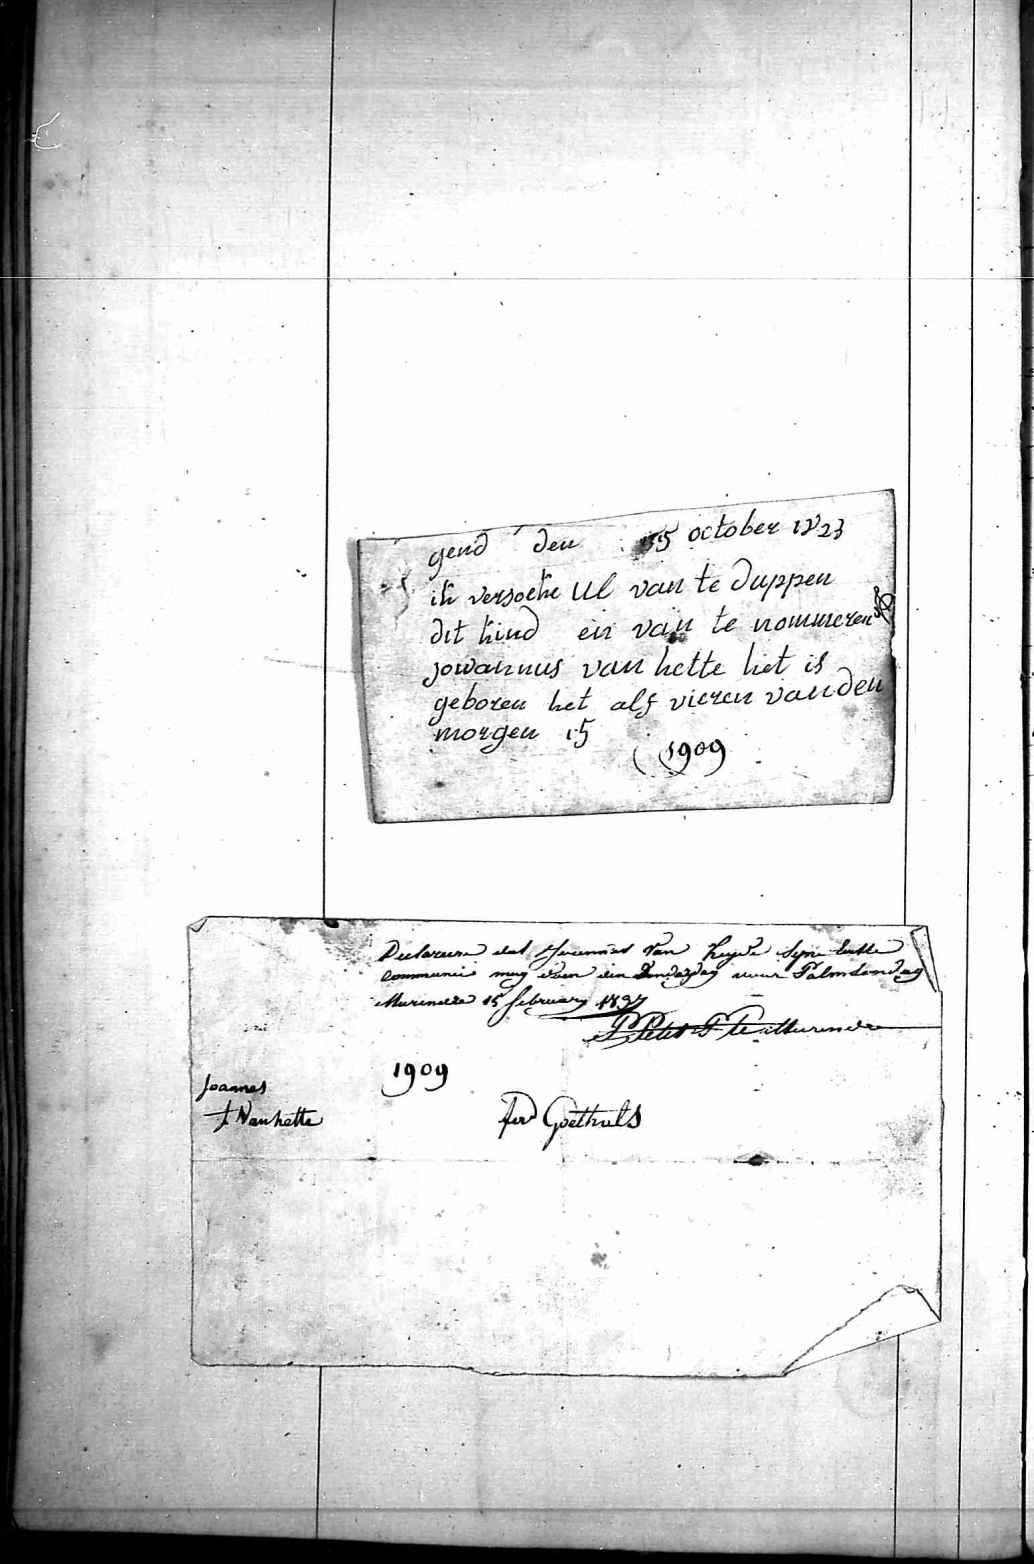 gend den 15 october 1823
ik versoeke Ul van te duppen
dit kind ein van te nommeren
jowannus van hette het is
geboren het alf vieren van den
morgen 15
1909
Declareere dat Joannes Van heyde syne
communie mag doen den Donderdag voor Palmsondag
15 february 1837
1909
Joannes
Vanhette
Goethals